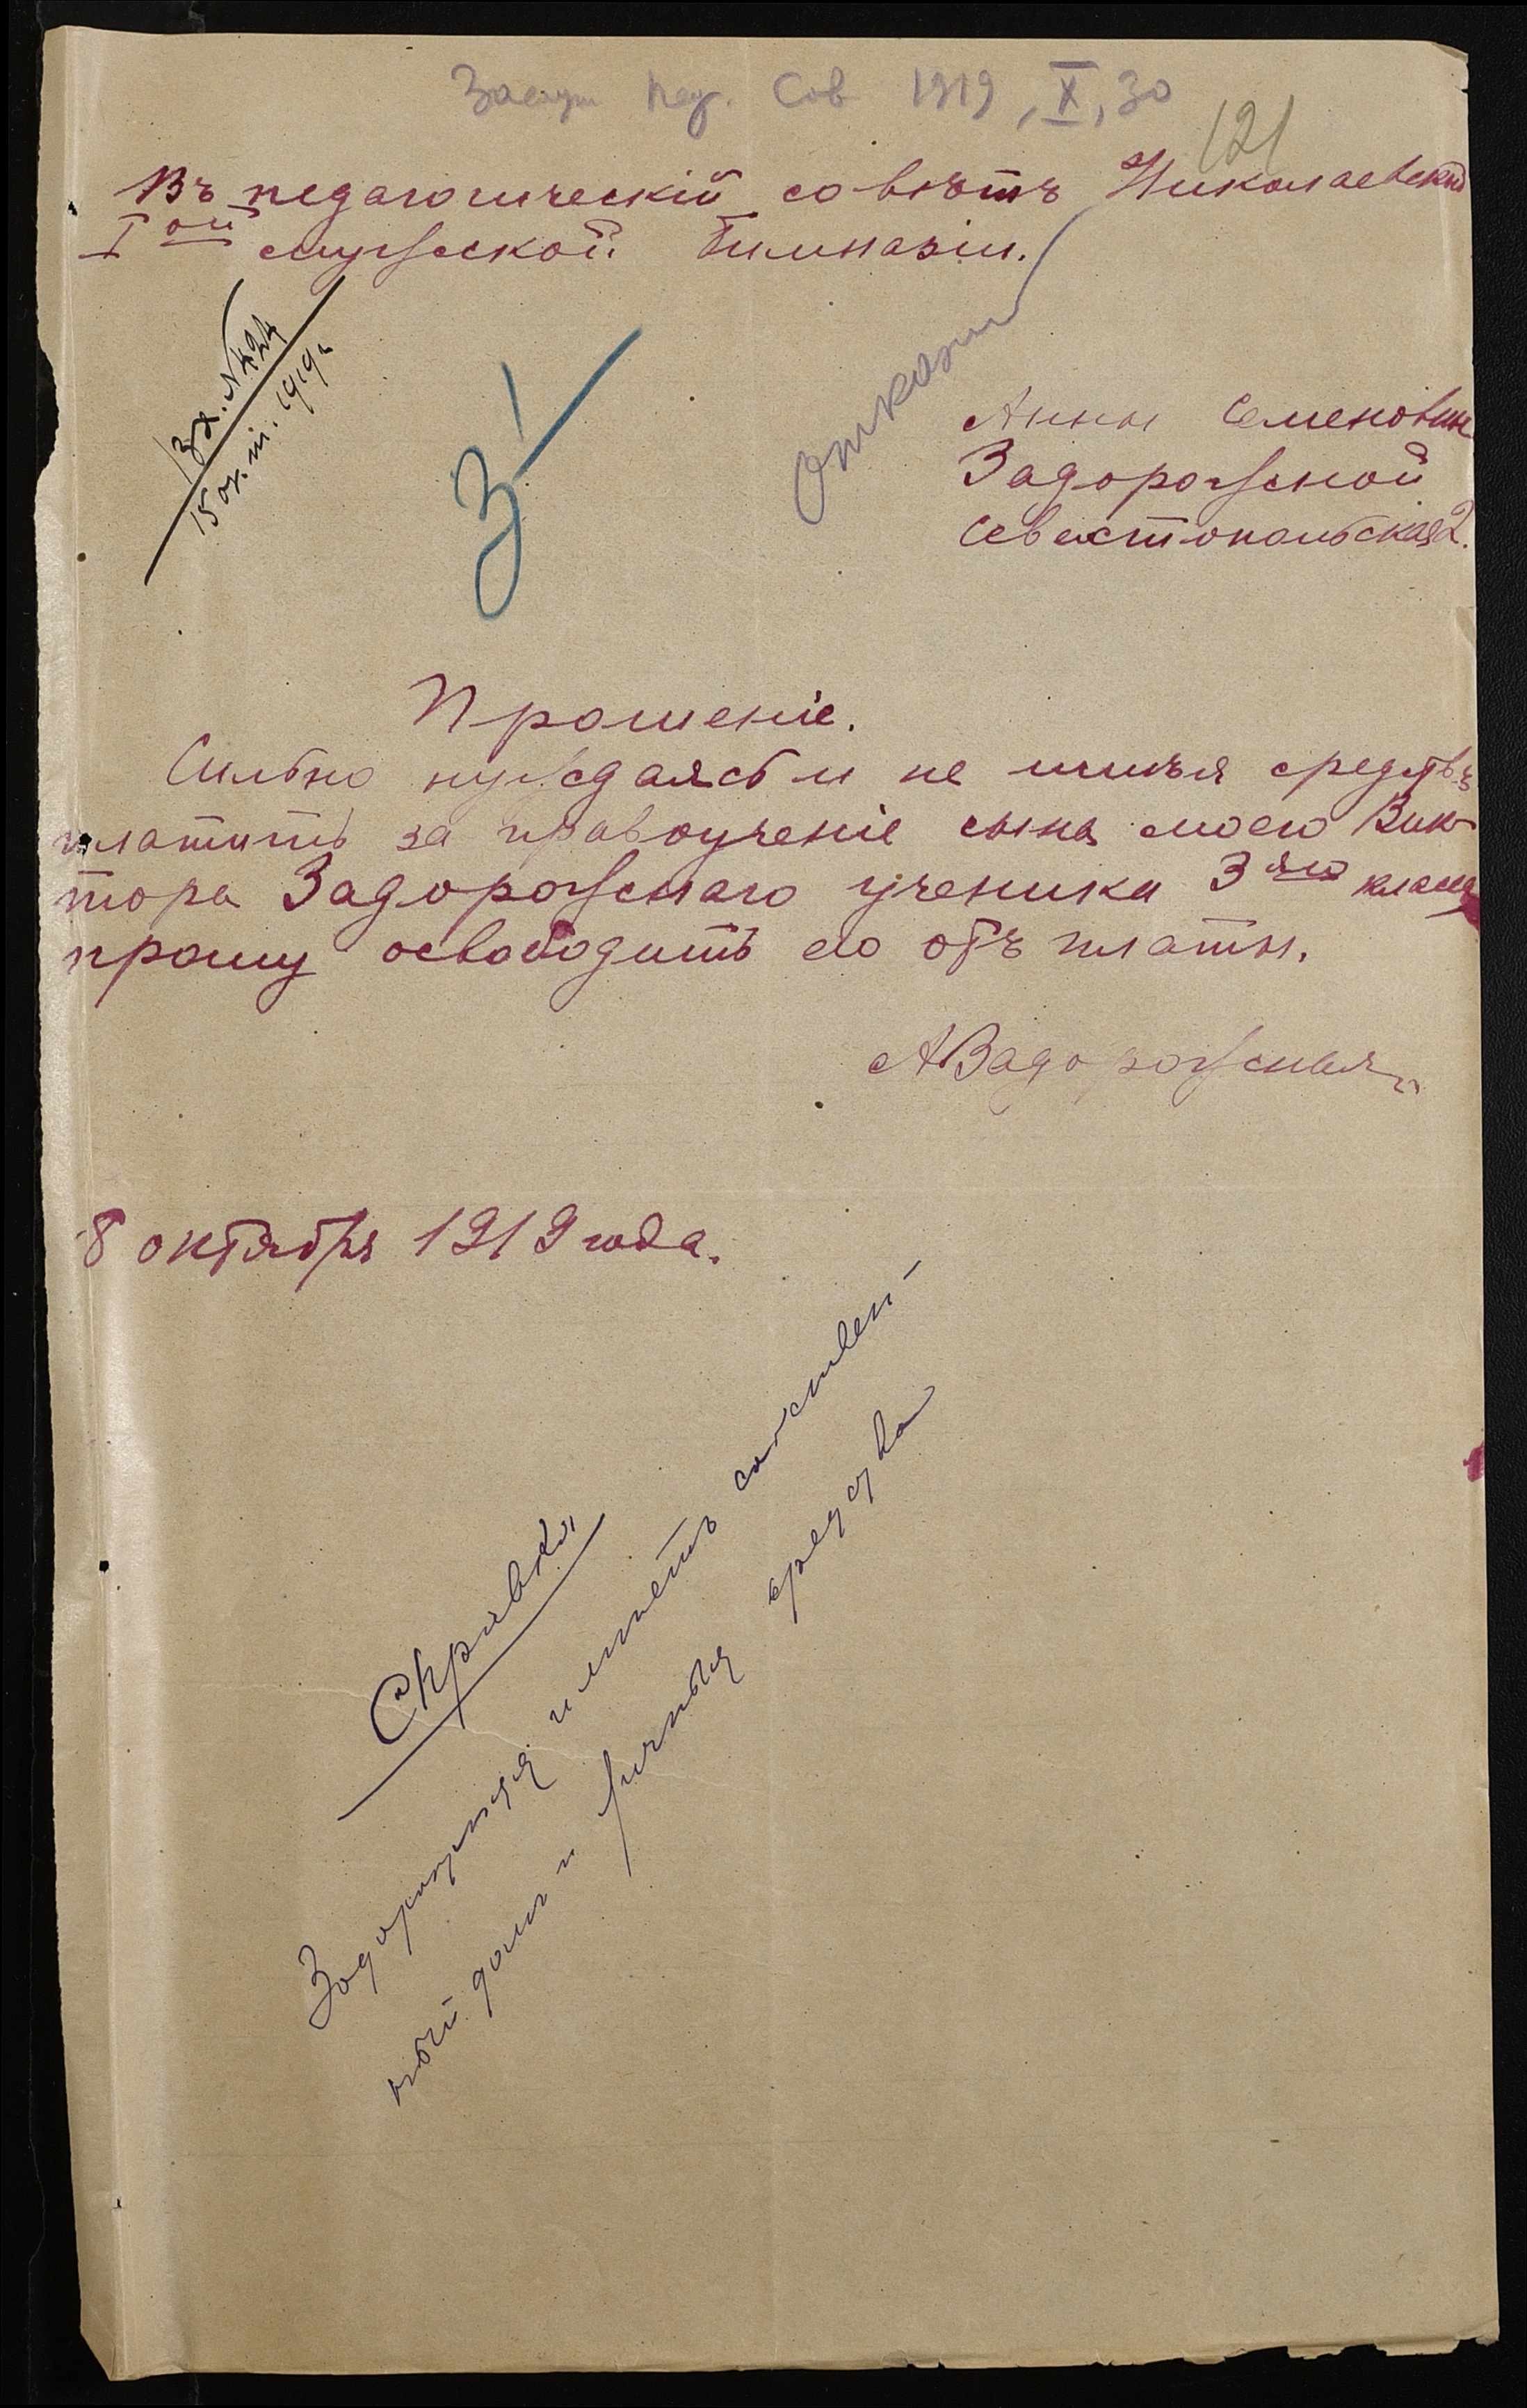 Засед Пед. Сов 1919, X, 30
121
Въ педагогическій совѣтъ Николаевской
Iой мужской Гимназіи.
Вх. N 424
15 окт. 1919 г.
3
Отказать
Анны Семеновны
Задорожной
Севастопольская 2.
Прошеніе.
Сильно нуждаясь и не имѣя средствъ
платить за правоученіе сына моего Вик-
тора Задорожнаго ученика 3яго класса
прошу освободить его отъ платы.
А Задорожная
8 октября 1919 года.
Справка
Задорожная имѣетъ собствен-
ный домъ и личныя средства